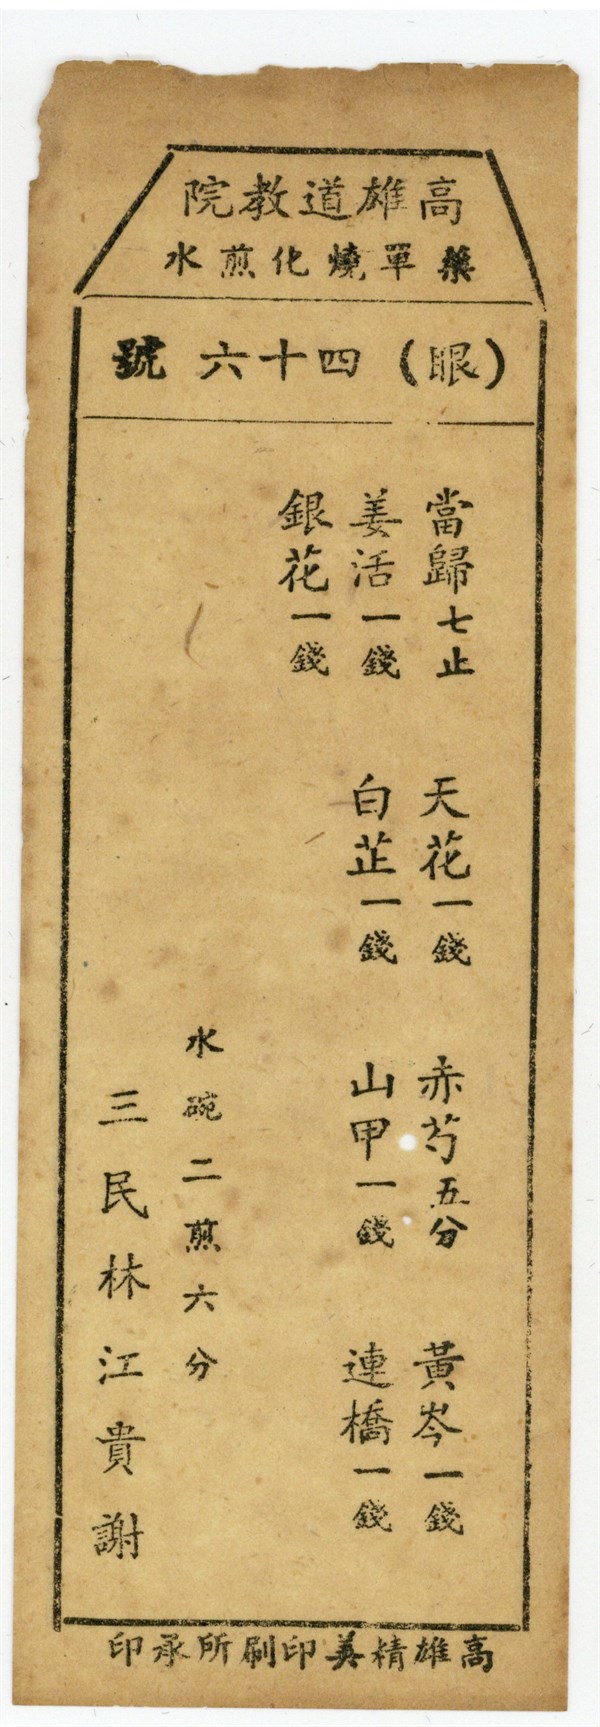 高雄道教院
藥單燒化煎水
(眼)四十六號
當歸七止 天花一錢 赤芍五分 黃岑一錢
姜活一錢 白芷一錢 山甲一錢 連橋一錢
銀花一錢
水碗二煎六分
三民林江貴謝
高雄精美印刷所承印